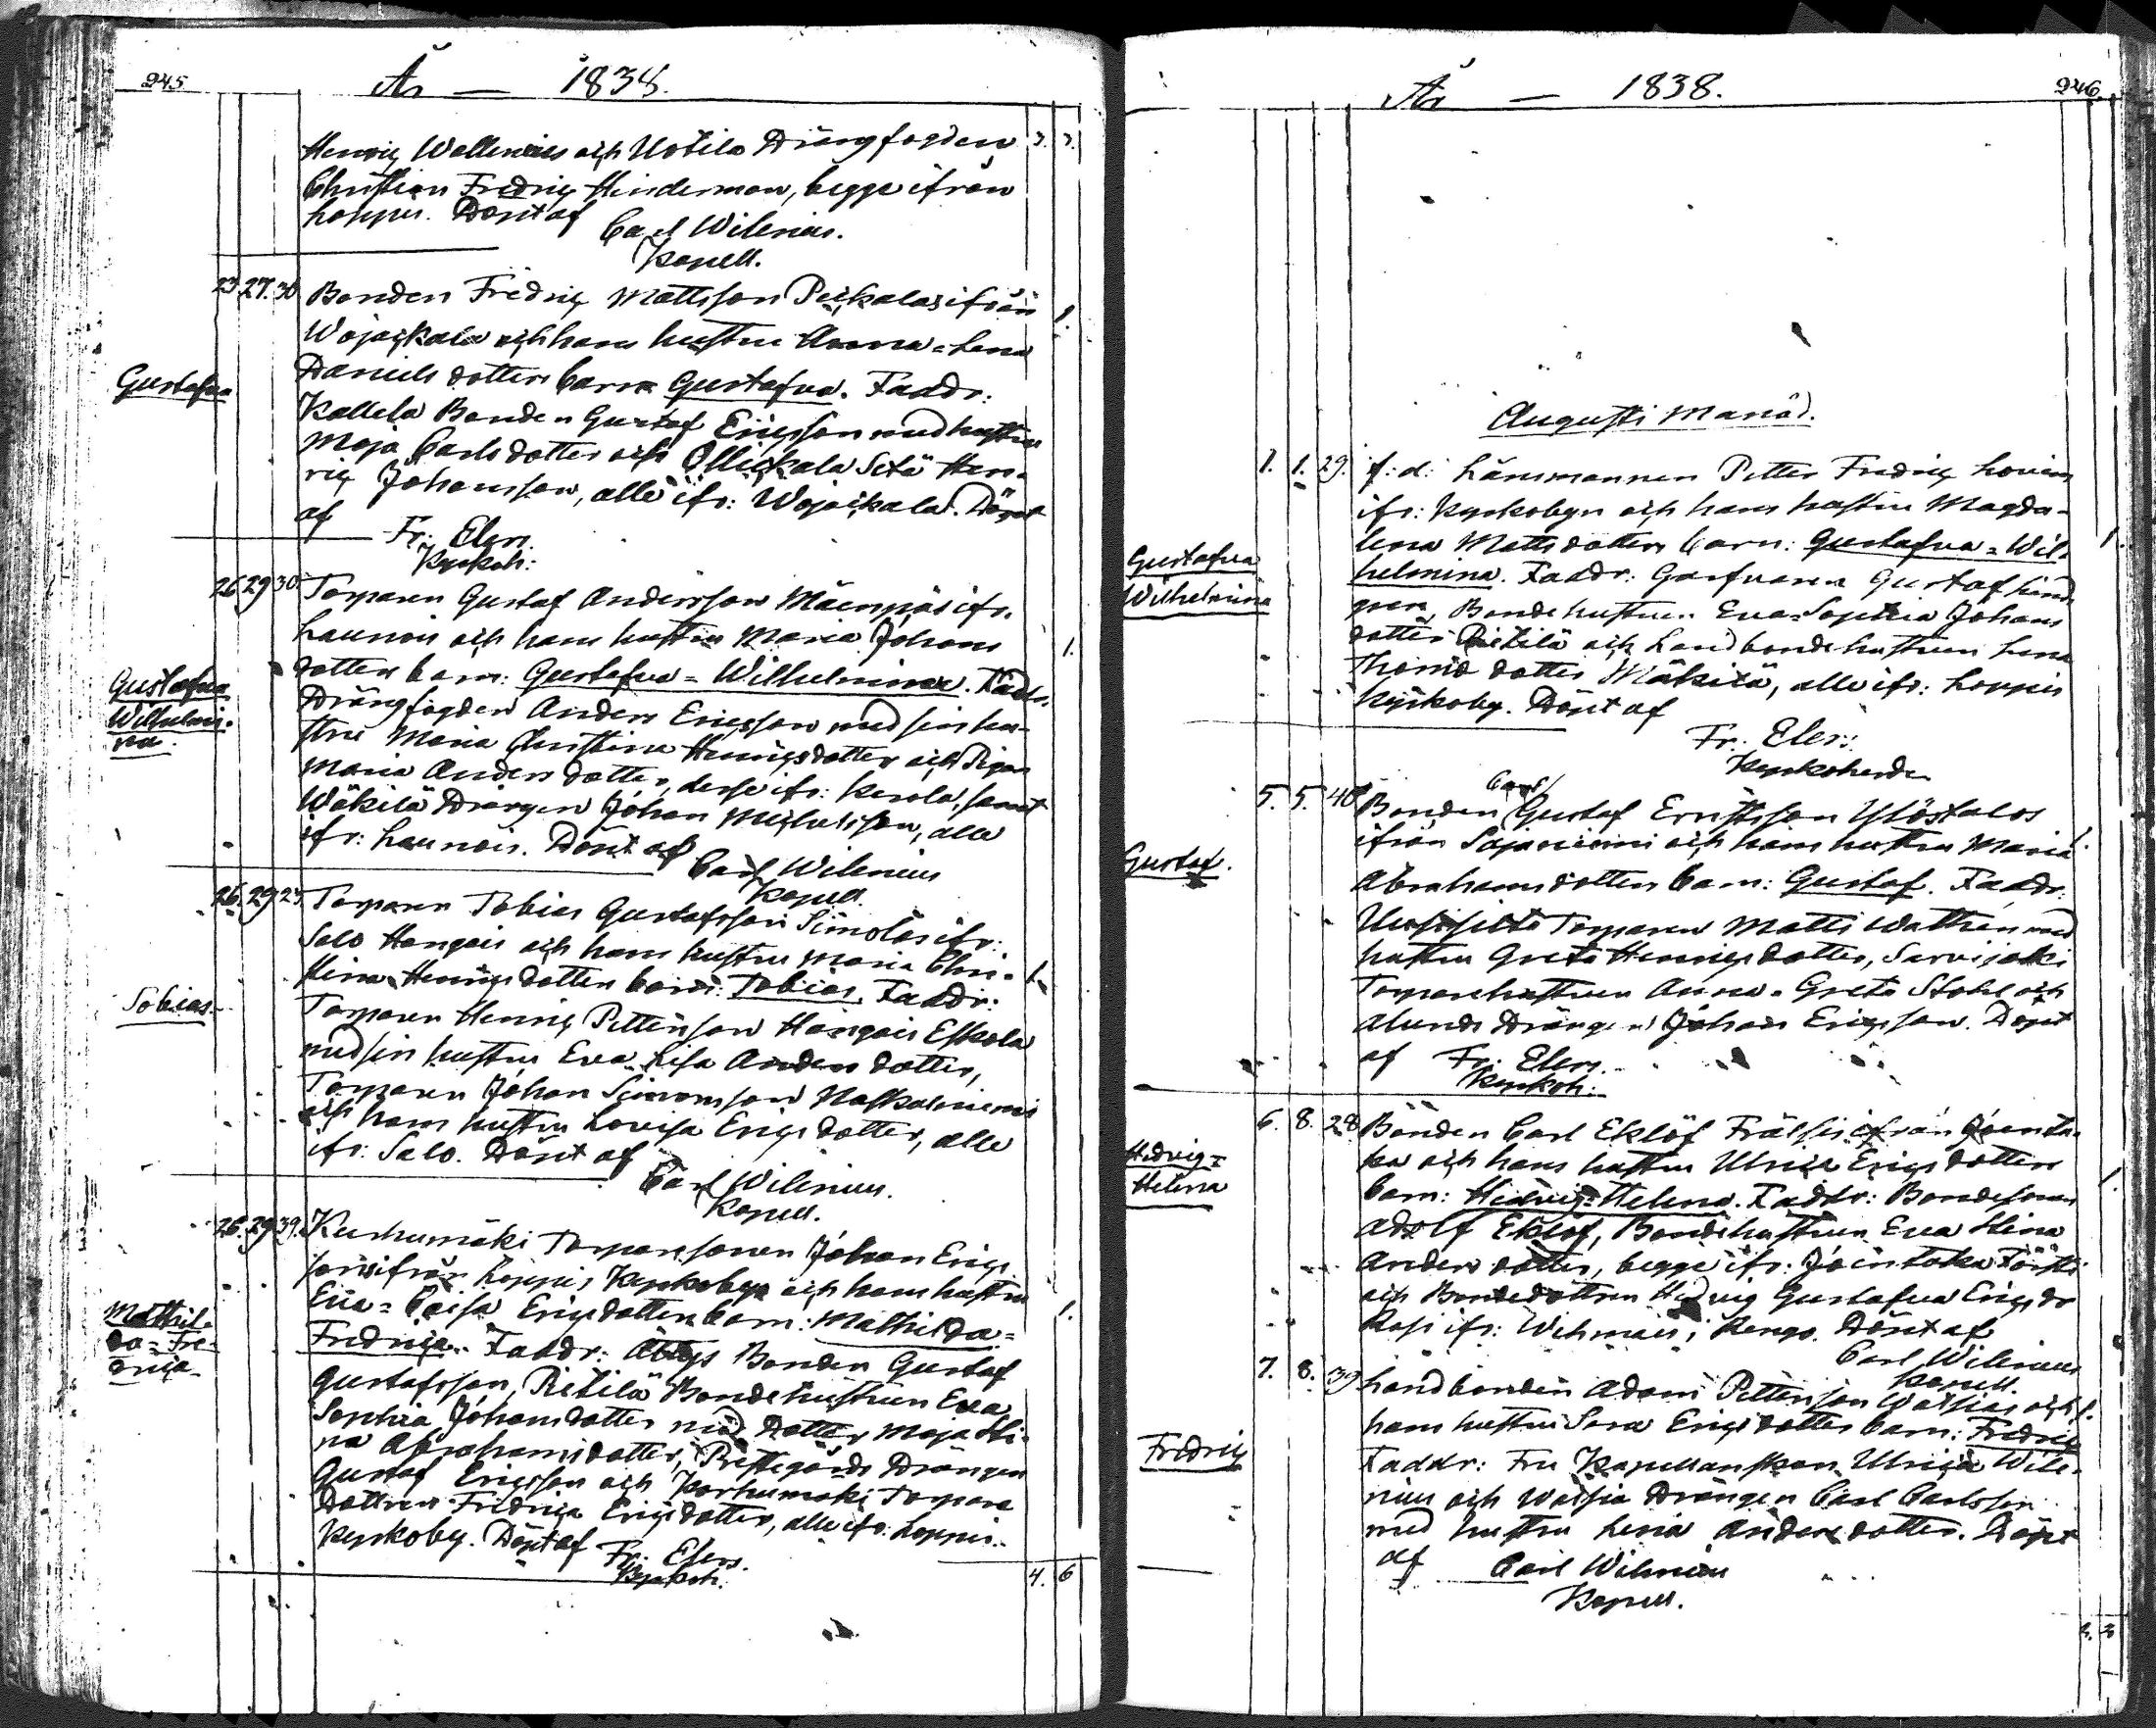 245
År — 1838.
Henric Wallenius och Uotila Drängfogden 3. 3.
Christian Fredric Hinderman, begge ifrån
Loppis. Döpt af Carl Wilenius.
Kapell.
Gustafva
23. 27. 30. Bonden Fredric Mattsson Peckalas ifrån 1.
Wojackala och hans hustru Anna-Lena
Danielsdotters barn Gustafva. Faddr:
Kallela Bonden Gustaf Ericsson med hustru
Maja Carlsdotter och Ollickala Setä Hen-
ric Johansson, alle ifr: Wojackala. Döpt
af Fr. Elers.
Kyrkoh:
Gustafva
Wilhelmi-
na.
26 29 30 Torparen Gustaf Andersson Mäenpääs ifr.
Launois och hans hustru Maria Johans 1.
dotters barn: Gustafva-Wilhelmina. Faddr.
Drängfogden Anders Ericsson med sin hu-
stru Maria Christina Henricsdotter och Pigan
Maria Andersdotter, desse ifr: Kerola, samt
Wäkilä Drängen Johan Michelsson, alle
ifr: Launois. Döpt af Carl Wilenius
Kapell.
Tobias.
26. 29 Torparen Tobias Gustafsson Simolas ifr:
Salo Hangais och hans hustru Maria Chri- 1.
stina Henricsdotters barn: Tobias. Faddr:
Torparen Henric Pettersson Hangais Eskola
med sin hustru Eva Lisa Andersdotter,
Torparen Johan Simonsson
och hans hustru Lovisa Ericsdotter, alle
ifr: Salo. Döpt af Carl Wilenius.
Kapell.
Mathil-
da-Fre-
drica
26. 29 39. Torparesonen Johan Erics
sons ifrån Loppis Kyrkoby och hans hustru
Eva-Caisa Ericsdotters barn: Mathilda- 1.
Fredrica. Faddr: Bonden Gustaf
Gustafsson, Pietilä Bondehustrun Eva
Sophia Johansdotter med Dotter Maja Sti-
na Abrahamsdotter, Prestegårds Drängen
Gustaf Ericsson och Karhumäki Torpare
Dottren Fredrica Ericsdotter, alle ifr: Loppis
Kyrkoby. Döpt af Fr. Elers.
Kyrkoh.
4. 6
246.
År — 1838.
Augusti Månad.
Gustafva
Wilhelmina
1. 1. 29. f: d: Länsmannen Petter Fredric
ifr: Kyrkobyn och hans hustru Magda-
lena Mattsdotters barn: Gustafva-Wil- 1.
helmina. Faddr: Garfvaren Gustaf Lind
gren, Bondehustrun Eva-Sophia Johans
dotter Pietilä och Landbondehustrun Lena
Thomasdotter Mäkilä, alle ifr: Loppis
Kyrkoby. Döpt af
Fr. Elers.
Kyrkoherde
Gustaf.
5. 5. 40 Bonden Carl Gustaf Ernstsson Ylöstalos
ifrån Sajaniemi och hans hustru Maria 1.
Abrahamsdotters barn: Gustaf. Faddr:
Torparen Matts med
hustru Greta Henricsdotter, Sarvijoki
Torparehustrun Anna-Greta Stohl och
Alunds Drängen Johan Ericsson. Döpt
af Fr. Elers.
Kyrkoh:
Hedvig-
Helena
6. 8. 28 Bonden Carl Eklöf Frälsis ifrån Joenta-
ka och hans hustru Ulrica Ericsdotters
barn: Hedvig-Helena. Faddr: Bondesonen 1.
Adolf Eklöf, Bondehustrun Eva Stina
Andersdotter, begge ifr: Joentaka
och Bondedottren Hedvig Gustafva Ericsdr
ifr: Döpt af
Carl Wilenius
Kapell.
Fredric
7. 8. 39 Landbonden Adam Pettersson Watsias och 1.
hans hustru Sara Ericsdotters barn: Fredric
Faddr: Fru Kapellanskan Ulrica Wile-
nius och Watsia Drängen Carl Carlsson
med hustru Lena Andersdotter. Döpt
af Carl Wilenius
Kapell.